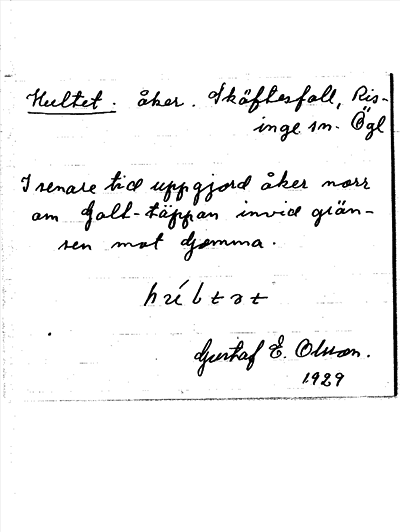 Hultet. åker. Skäftesfall, Ris-
inge sn. Ögl
I senare tid uppgjord åker norr
om Galt-täppan invid grän-
sen mot
Gustaf E. Olsson.
1929